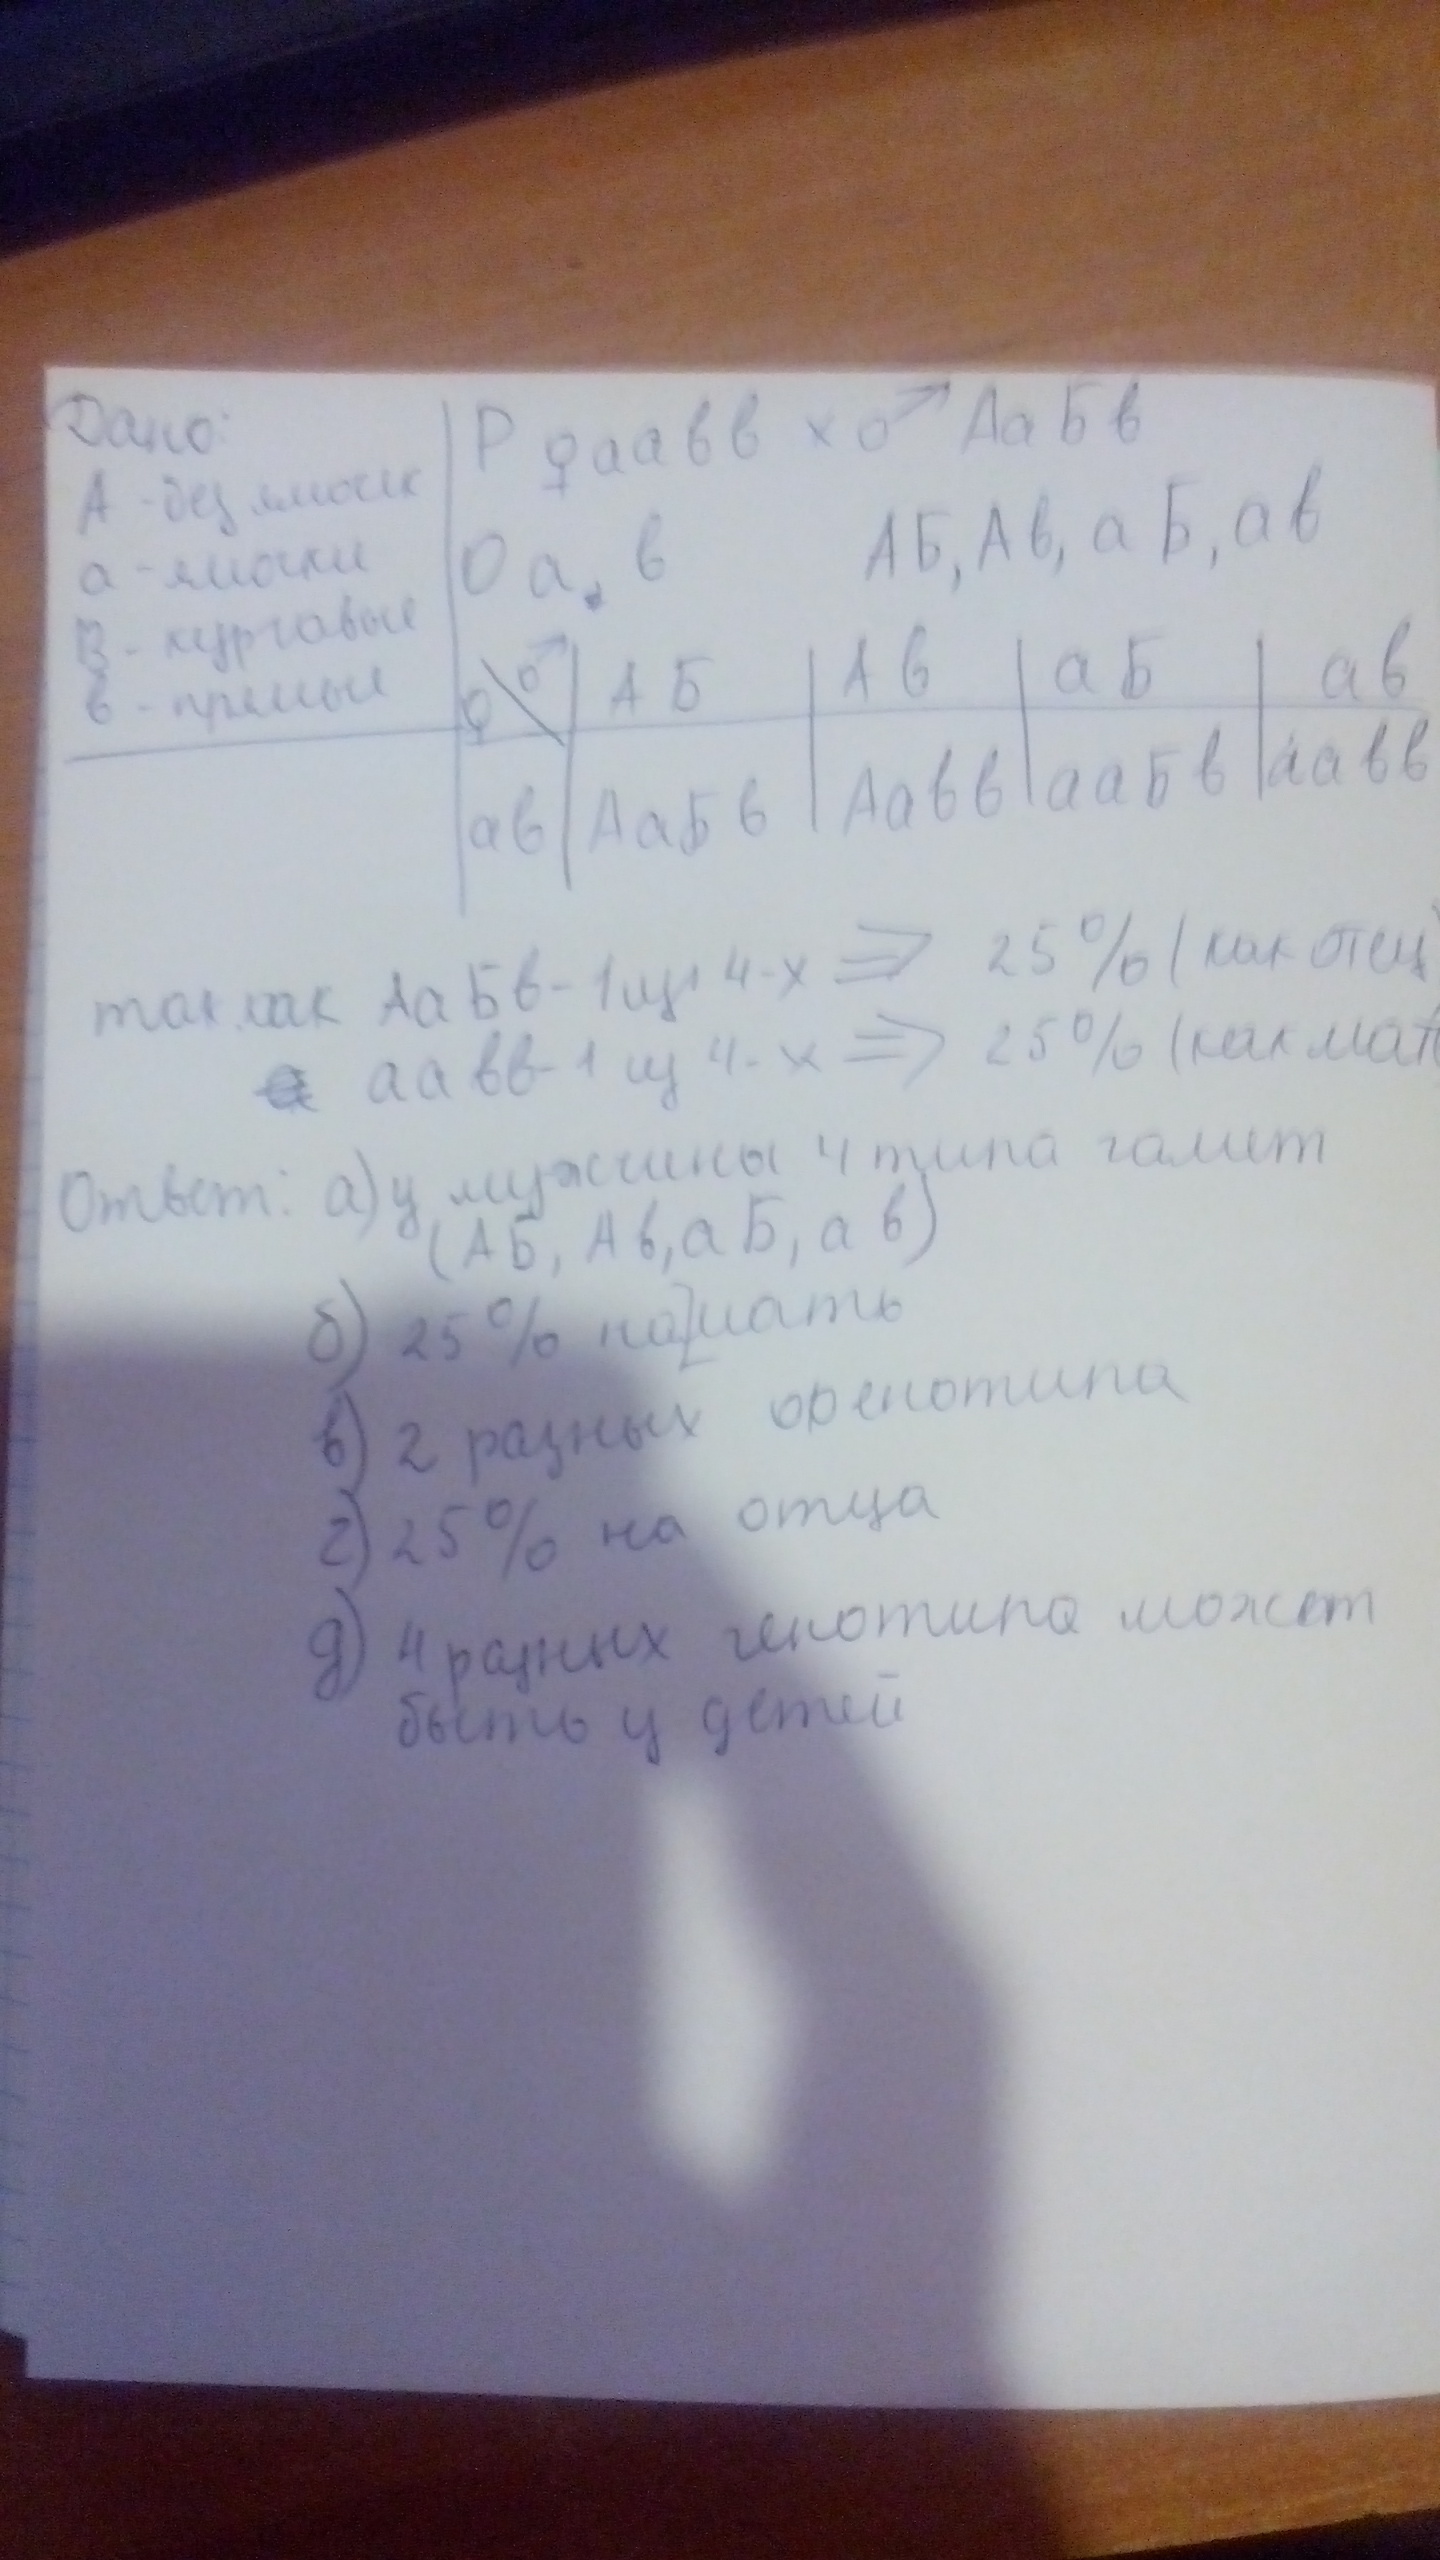 Дано:
А - без ямочек
а - ямочки
В - курчавые
в - прямые
Р ♀ аавв х ♂ АаБв
О а, в АБ, Ав, аБ, ав
♀ ♂ АБ Ав аБ ав
ав АаБв Аавв ааБв аавв
так как АаБв - 1 из 4-х ⇒ 25% (как отец)
аавв - 1 из 4-х ⇒ 25% (как мат
Ответ: а) у мужчины 4 типа гамет
(АБ, Ав, аБ, ав)
б) 25% на мать
в) 2 разных фенотипа
г) 25% на отца
д) 4 разных генотипа может
быть у детей